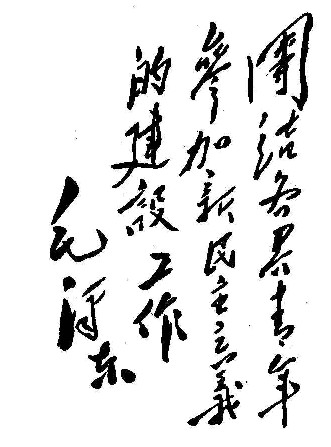 團結各界青年
參加新民主主義
的建設工作
毛澤东